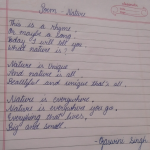 Poem - Nature
This is a Rhyme,
Or maybe a Song
Today I will tell you
What nature is?
Nature is Unique
And nature is all
Beautiful and unique that's all.
Nature is everywhere,
Nature is everywhere you go,
Everything that lives,
Big and small.
Singh